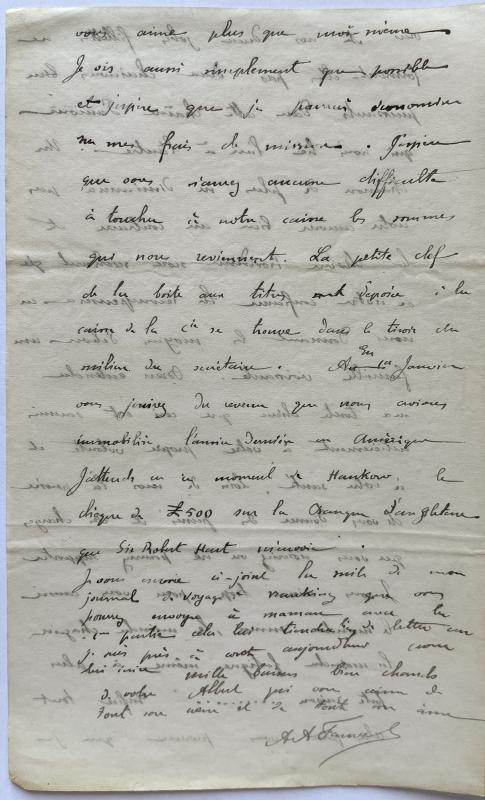 vous aime plus que moi-même
Je vis aussi simplement que possible
et j'espère que je pourrai économiser
sur mes frais de mission. J'espère
que vous n'aurez aucune difficulté
à toucher à notre caisse les sommes
qui nous reviennent. La petite clef
de la boîte aux titres déposée à la
caisse de la Cie se trouve dans le tiroir du
milieu du secrétaire. En Janvier
vous jouirez du revenu que nous avions
immobilisé l'année dernière en Amérique
J'attends en ce moment de Hankow le
chèque de £500 sur la Banque d'Angleterre
que Sir Robert Hart m'envoie
Je vous envoie ci-joint la suite de mon
journal de voyage Nanking que vous
pourrez envoyer à maman avec la
1re partie cela lui tiendra lieu de lettre car
je suis pris à court aujourd'hui pour
lui écrire mille baisers bien chauds
de votre Albert qui vous aime de
tout son cœur et de tout son âme